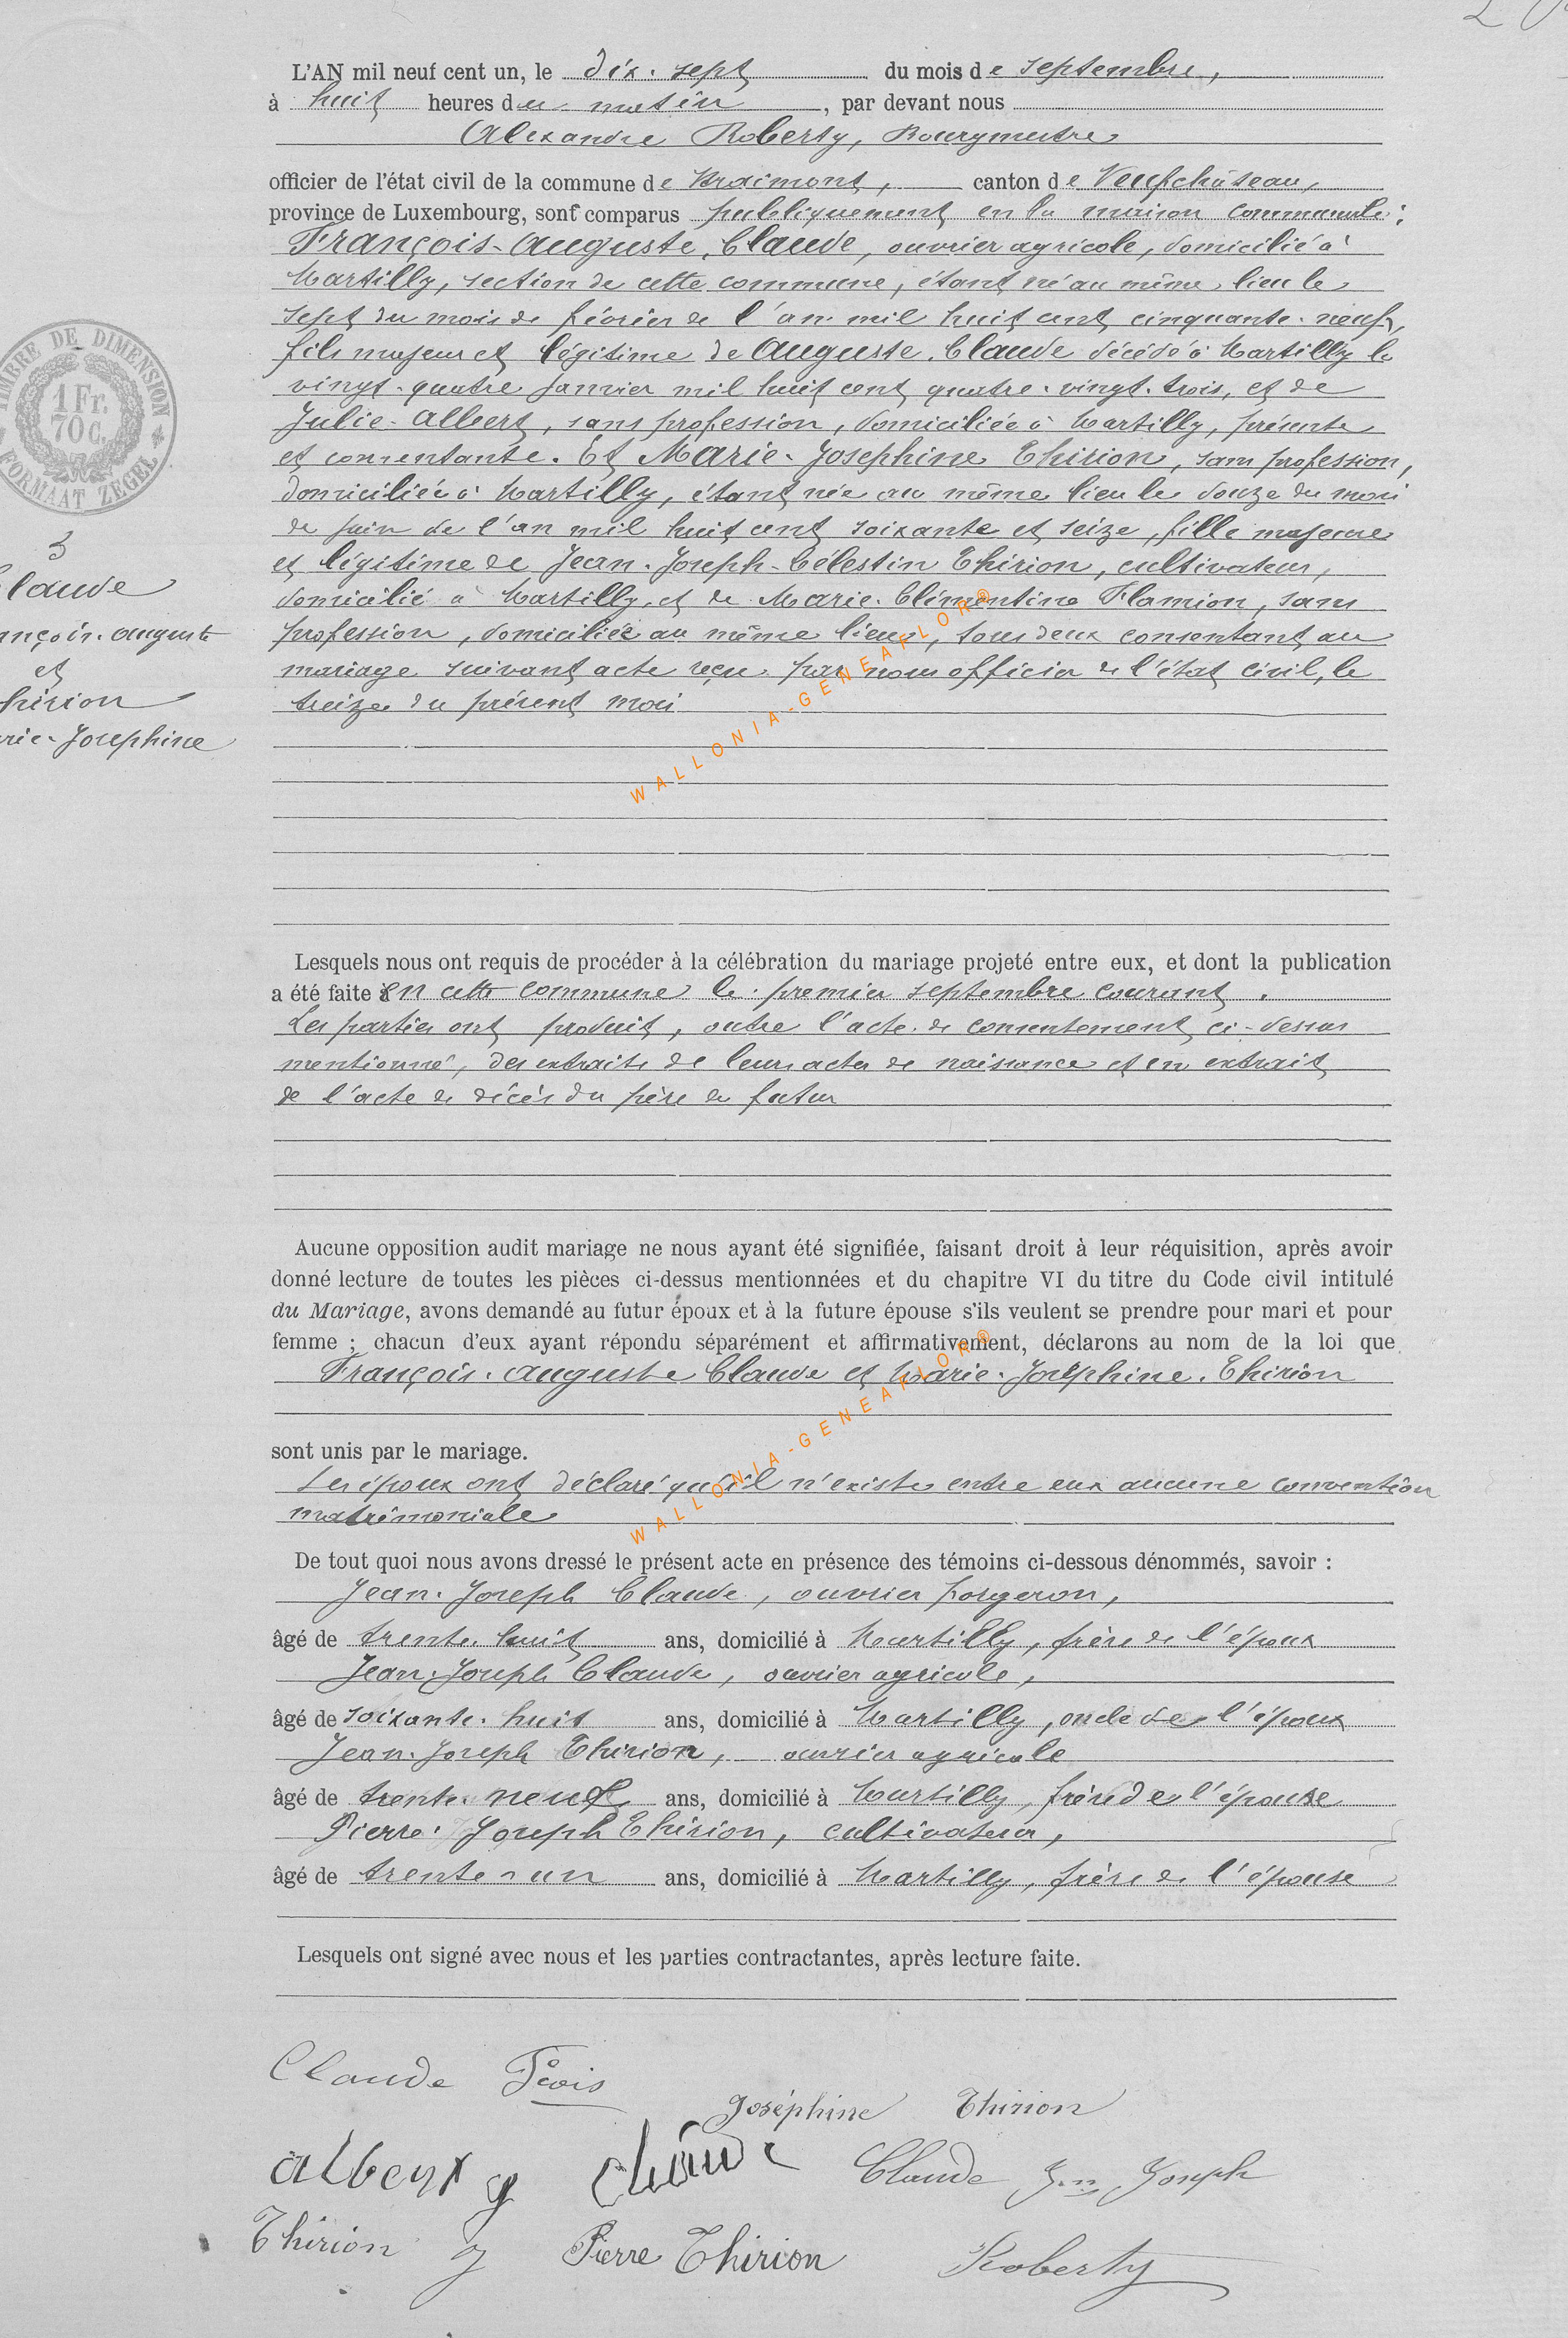 L'AN mil neuf cent un, le dix-sept du mois de septembre,
à huit heures du matin, par devant nous
Alexandre Roberty, Bourgmestre
officier de l'état civil de la commune de Straimont, canton de Neufchâteau,
province de Luxembourg, sont comparus publiquement en la maison communale:
François-Auguste Claude, ouvrier agricole, domicilié à
Martilly, section de cette commune, étant né au même lieu le
sept du mois de février de l'an mil huit cent cinquante-neuf,
fils majeur et légitime de Auguste Claude décédé à Martilly le
vingt-quatre janvier mil huit cent quatre-vingt-trois, et de
Julie Albert, sans profession, domiciliée à Martilly, présente
et consentante. Et Marie-Josephine Thirion, sans profession,
domiciliée à Martilly, étant née au même lieu le douze du mois
de juin de l'an mil huit cent soixante et seize, fille majeure
et légitime de Jean-Joseph-Célestin Thirion, cultivateur,
domicilié à Martilly, et de Marie-Clémentine Flamion, sans
profession, domiciliée au même lieu, tous deux consentant au
mariage suivant acte reçu par nous officier de l'état civil, le
treize du présent mois
TIMBRE DE DIMENSION
1 Fr.
70 C.
FORMAAT ZEGEL
Claude
ançois-Auguste
et
hirion
rie-Josephine
WALLONIA-GENEAFLOR®
Lesquels nous ont requis de procéder à la célébration du mariage projeté entre eux, et dont la publication
a été faite en cette commune le premier septembre courant.
Les parties ont produit, outre l'acte de consentement ci-dessus
mentionné, des extraits de leurs actes de naissance et un extrait
de l'acte de décès du père du futur
Aucune opposition audit mariage ne nous ayant été signifiée, faisant droit à leur réquisition, après avoir
donné lecture de toutes les pièces ci-dessus mentionnées et du chapitre VI du titre du Code civil intitulé
du Mariage, avons demandé au futur époux et à la future épouse s'ils veulent se prendre pour mari et pour
femme ; chacun d'eux ayant répondu séparément et affirmativement, déclarons au nom de la loi que
François-Auguste Claude et Marie-Joséphine Thirion
sont unis par le mariage.
Les époux ont déclaré qu'il n'existe entre eux aucune convention
matrimoniale
WALLONIA-GENEAFLOR®
De tout quoi nous avons dressé le présent acte en présence des témoins ci-dessous dénommés, savoir :
Jean-Joseph Claude, ouvrier forgeron,
âgé de trente-huit ans, domicilié à Martilly, frère de l'époux
Jean-Joseph Claude, ouvrier agricole,
âgé de soixante-huit ans, domicilié à Martilly, oncle de l'époux
Jean-Joseph Thirion, ouvrier agricole
âgé de trente-neuf ans, domicilié à Martilly, frère de l'épouse
Pierre-Joseph Thirion, cultivateur,
âgé de trente-un ans, domicilié à Martilly, frère de l'épouse
Lesquels ont signé avec nous et les parties contractantes, après lecture faite.
Claude Fcois
Joséphine Thirion
albert j claude Claude Jn Joseph
Thirion J Pierre Thirion Roberty